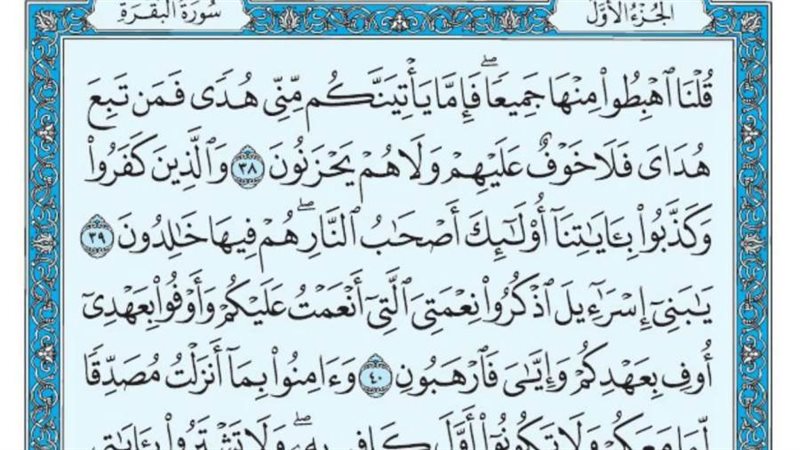 الجُزْءُ الأَوَّلُ
سُورَةُ البَقَرَةِ
قُلْنَا ٱهْبِطُوا۟ مِنْهَا جَمِيعًاۖ فَإِمَّا يَأْتِيَنَّكُم مِّنِّى هُدًى فَمَن تَبِعَ
هُدَاىَ فَلَا خَوْفٌ عَلَيْهِمْ وَلَا هُمْ يَحْزَنُونَ ٣٨ وَٱلَّذِينَ كَفَرُوا۟
وَكَذَّبُوا۟ بِـَٔايَٰتِنَآ أُو۟لَٰٓئِكَ أَصْحَٰبُ ٱلنَّارِۖ هُمْ فِيهَا خَٰلِدُونَ ٣٩
يَٰبَنِىٓ إِسْرَٰٓءِيلَ ٱذْكُرُوا۟ نِعْمَتِىَ ٱلَّتِىٓ أَنْعَمْتُ عَلَيْكُمْ وَأَوْفُوا۟ بِعَهْدِىٓ
أُوفِ بِعَهْدِكُمْ وَإِيَّٰىَ فَٱرْهَبُونِ ٤٠ وَءَامِنُوا۟ بِمَآ أَنزَلْتُ مُصَدِّقًا
لِّمَا مَعَكُمْ وَلَا تَكُونُوٓا۟ أَوَّلَ كَافِرٍۭ بِهِۦۖ وَلَا تَشْتَرُوا۟ بِـَٔايَٰتِى